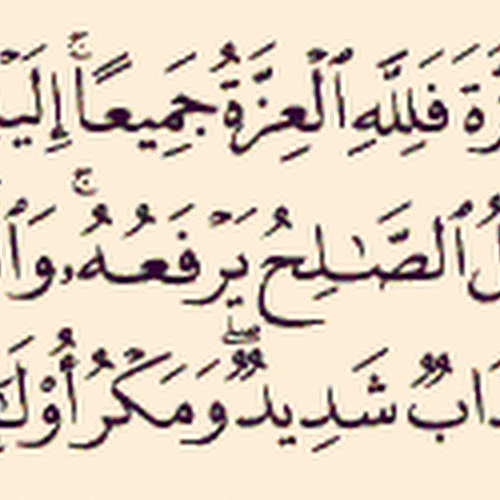 ـزَّةَ فَلِلَّهِ ٱلْعِزَّةُ جَمِيعًاۚ إِلَيْـ
ـلُ ٱلصَّـٰلِحُ يَرْفَعُهُۥۚ وَٱ
ـذَابٌ شَدِيدٌۖ وَمَكْرُ أُوْلَـٰٓ